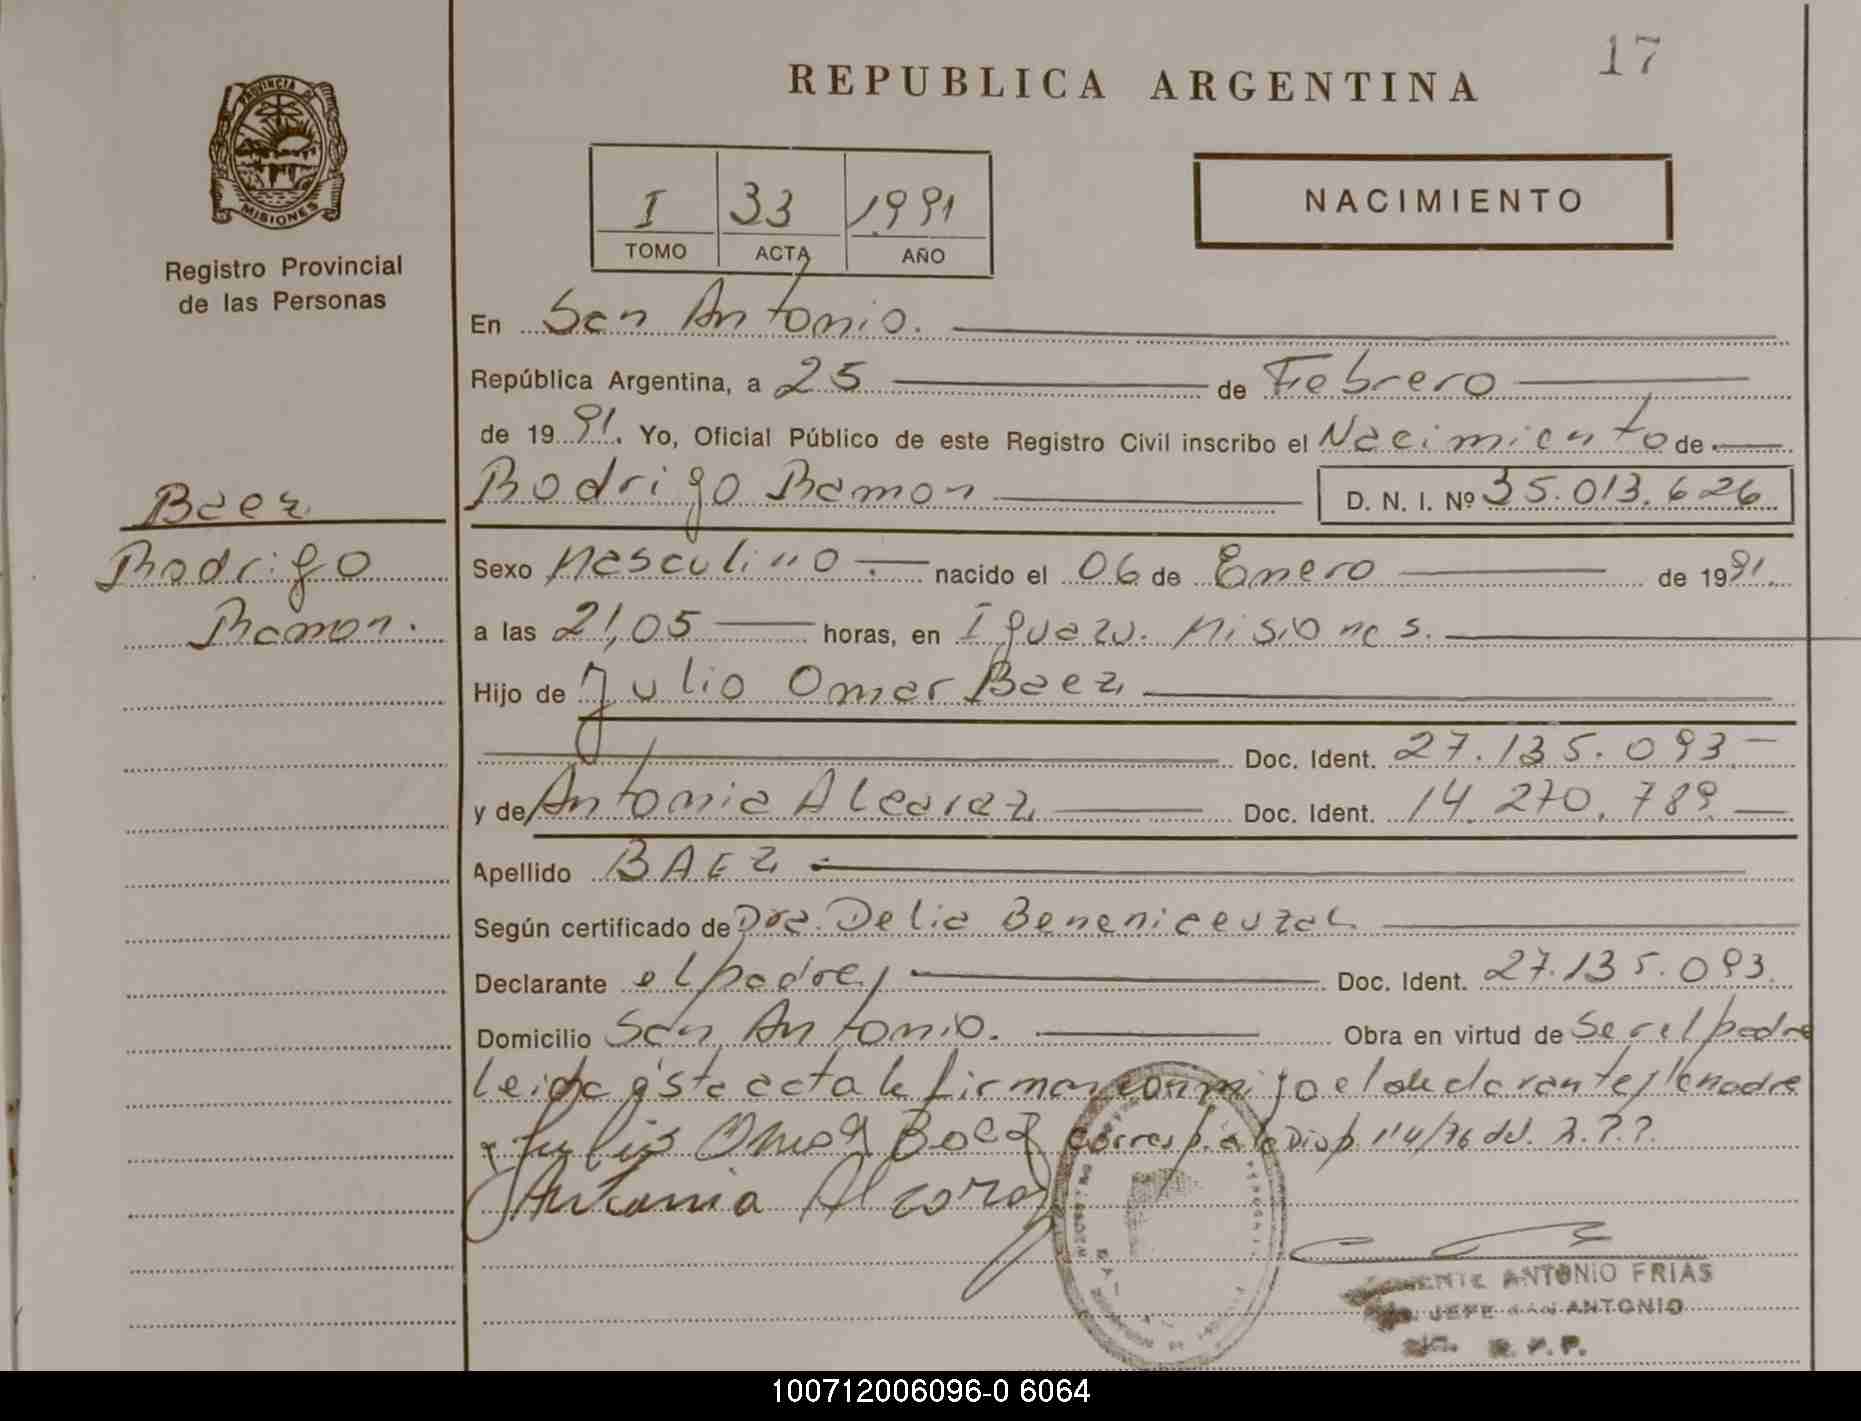 17
REPUBLICA ARGENTINA
PROVINCIA DE
MISIONES
Registro Provincial
de las Personas
I 33 1991
TOMO ACTA AÑO
NACIMIENTO
En San Antonio.
República Argentina, a 25 de Febrero
de 1991. Yo, Oficial Público de este Registro Civil inscribo el Nacimiento de
Baez
Rodrigo Ramon D. N. I. Nº 35.013.626
Rodrigo
Ramon.
Sexo Masculino. nacido el 06 de Enero de 1991.
a las 21,05 horas, en Iguazu. Misiones.
Hijo de Julio Omar Baez
Doc. Ident. 27.135.093
y de Antonia Alcaraz Doc. Ident. 14.270.789
Apellido BAEZ
Según certificado de Dra. Delia
Declarante el padre, Doc. Ident. 27.135.093.
Domicilio San Antonio. Obra en virtud de Ser el padre
Leida ésta acta la firman conmigo el declarante, la madre
Julio Omar Baez corresp. a la Disp. 114/76 del
Antonia Alcaraz
ANTONIO FRIAS
JEFE SAN ANTONIO
R. P. P.
100712006096-0 6064